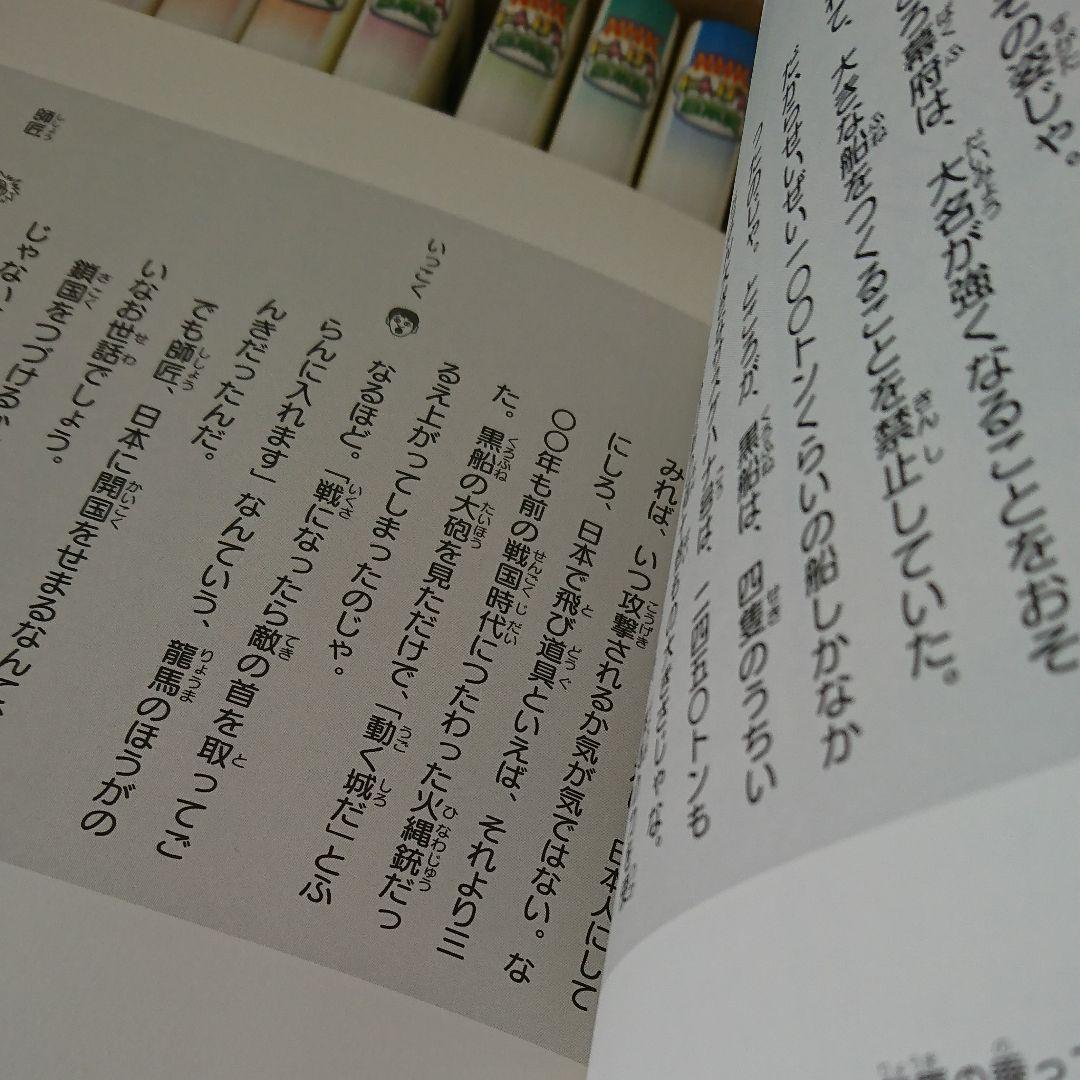 の姿じゃ。
幕府は、大名が強くなることをおそ
れて、大きな船をつくることを禁止していた。
だからせいぜい一〇〇トンくらいの船しかなか
ところが、黒船は、四隻のうちい
二四五〇トンも
みれば、いつ攻撃されるか気が気ではない。な
にしろ、日本で飛び道具といえば、それより三
〇〇年も前の戦国時代につたわった火縄銃だっ
た。黒船の大砲を見ただけで、「動く城だ」とふ
るえ上がってしまったのじゃ。
いっこく
なるほど。「戦になったら敵の首を取ってご
らんに入れます」なんていう、龍馬のほうがの
んきだったんだ。
でも師匠、日本に開国をせまるなんて、
いなお世話でしょう。
鎖国をつづける
じゃない
師匠
NHK
NHK
NHK